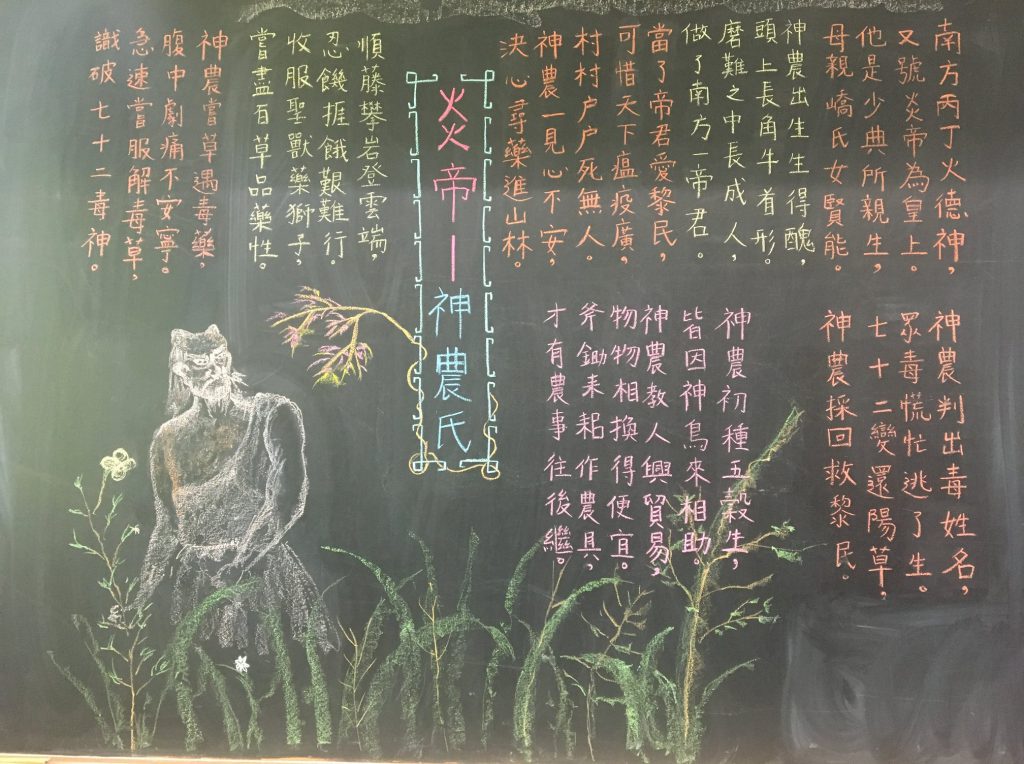 南方丙丁火德神，
又號炎帝為皇上。
他是少典所親生，
母親嶠氏女賢能。
神農出生生得醜，
頭上長角牛首形。
磨難之中長成人，
做了南方一帝君。
當了帝君愛黎民，
可惜天下瘟疫廣，
村村户户死無人。
神農一見心不安，
決心尋藥進山林。
炎帝—神農氏
順藤攀岩登雲端，
忍饑捱餓艱難行。
收服聖獸藥獅子，
嘗盡百草品藥性。
神農嘗草遇毒藥，
腹中劇痛不安寧。
急速嘗服解毒草，
識破七十二毒神。
神農判出毒姓名，
眾毒慌忙逃了生。
七十二變還陽草，
神農採回救黎民。
神農初種五穀生，
皆因神鳥來相助。
神農教人興貿易，
物物相換得便宜。
斧鋤耒耜作農具，
才有農事往後繼。